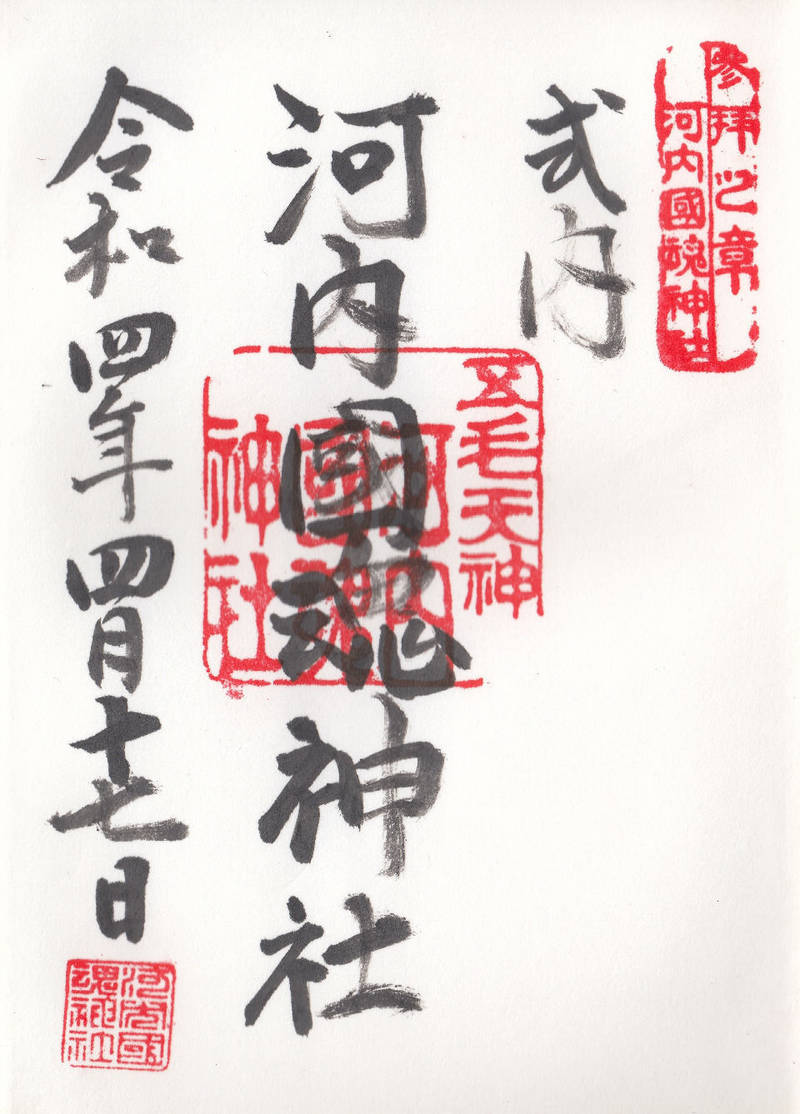 参拝之章
河内國魂神社
式内
五毛天神
河内國魂神社
河内國魂神社
令和四年四月十七日
河内國魂神社